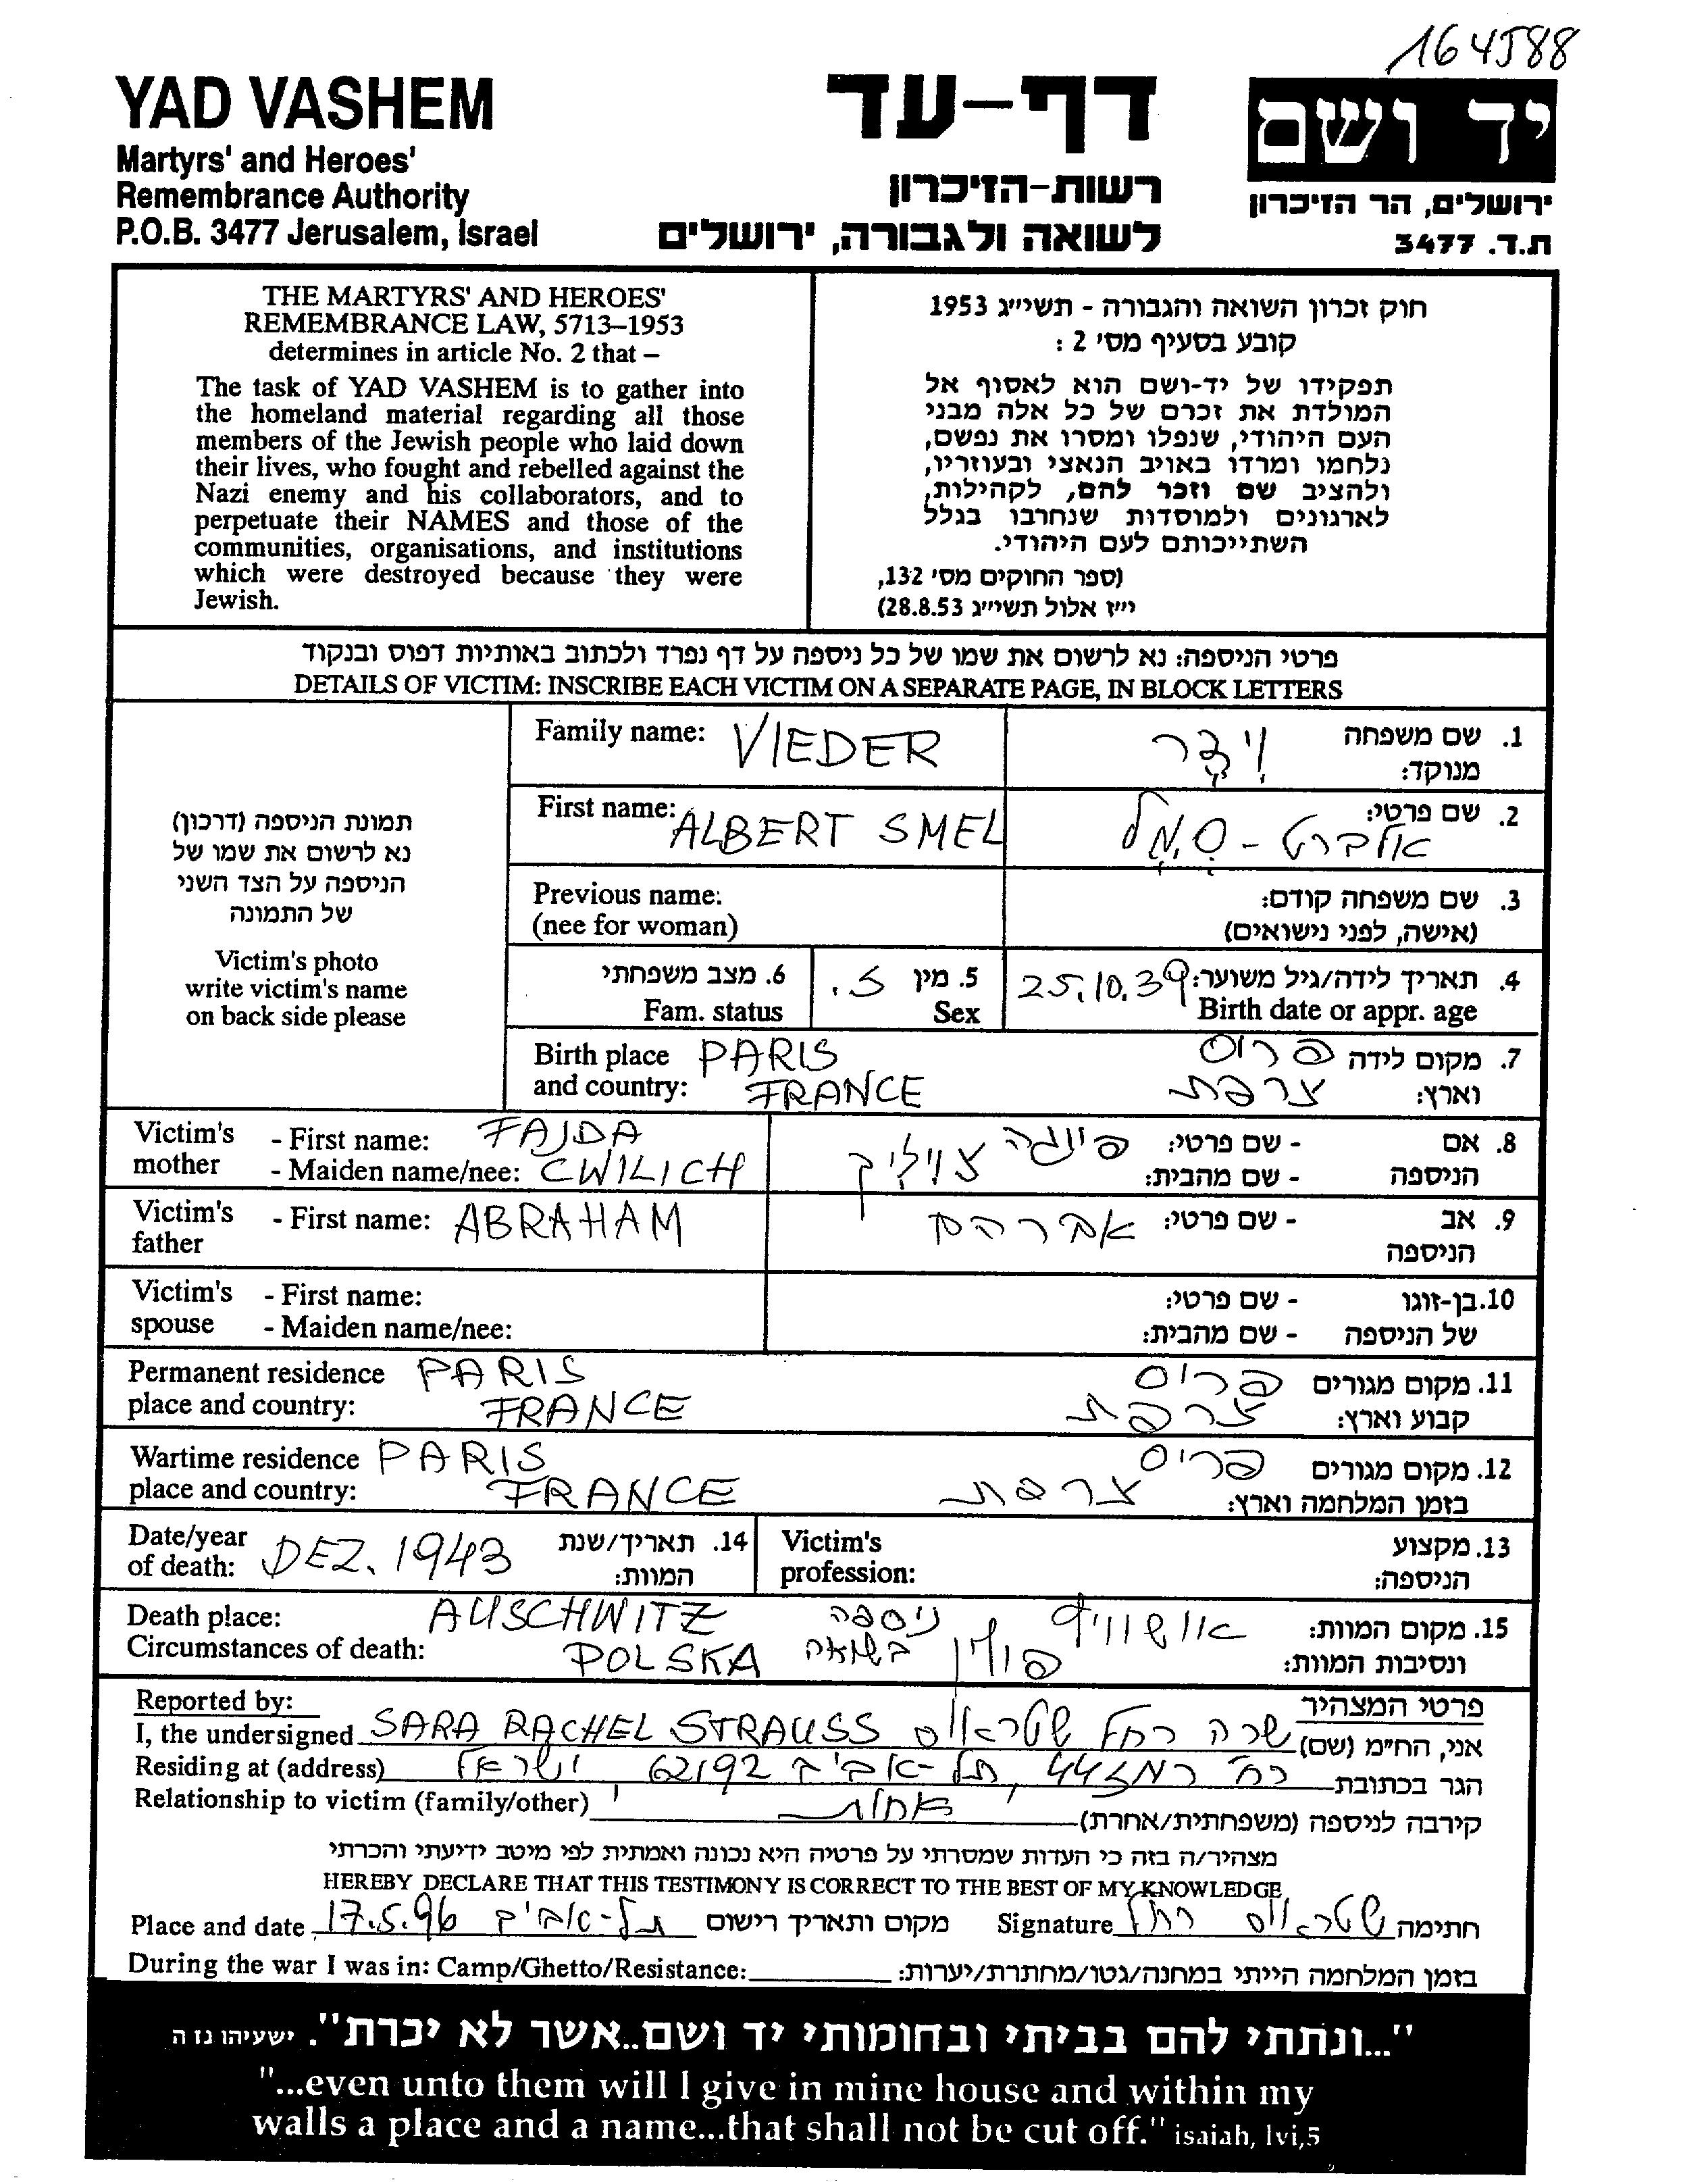 164588
YAD VASHEM
Martyrs' and Heroes'
Remembrance Authority
P.O.B. 3477 Jerusalem, Israel
דף-עד
רשות-הזיכרון
לשואה ולגבורה, ירושלים
יד ושם
ירושלים, הר הזיכרון
ת.ד. 3477
THE MARTYRS' AND HEROES'
REMEMBRANCE LAW, 5713–1953
determines in article No. 2 that –
The task of YAD VASHEM is to gather into
the homeland material regarding all those
members of the Jewish people who laid down
their lives, who fought and rebelled against the
Nazi enemy and his collaborators, and to
perpetuate their NAMES and those of the
communities, organisations, and institutions
which were destroyed because they were
Jewish.
חוק זכרון השואה והגבורה - תשי״ג 1953
קובע בסעיף מס׳ 2 :
תפקידו של יד-ושם הוא לאסוף אל
המולדת את זכרם של כל אלה מבני
העם היהודי, שנפלו ומסרו את נפשם,
נלחמו ומרדו באויב הנאצי ובעוזריו,
ולהציב שם וזכר להם, לקהילות,
לארגונים ולמוסדות שנחרבו בגלל
השתייכותם לעם היהודי.
(ספר החוקים מס׳ 132,
י״ז אלול תשי״ג 28.8.53)
פרטי הניספה: נא לרשום את שמו של כל ניספה על דף נפרד ולכתוב באותיות דפוס ובנקוד
DETAILS OF VICTIM: INSCRIBE EACH VICTIM ON A SEPARATE PAGE, IN BLOCK LETTERS
תמונת הניספה (דרכון)
נא לרשום את שמו של
הניספה על הצד השני
של התמונה
Victim's photo
write victim's name
on back side please
Family name: VIEDER
1. שם משפחה מנוקד: וִידֶר
First name: ALBERT SMEL
2. שם פרטי: אלברט - סמל
Previous name:
(nee for woman)
3. שם משפחה קודם:
(אישה, לפני נישואים)
4. תאריך לידה/גיל משוער: 25.10.39
Birth date or appr. age
5. מין ז.
Sex
6. מצב משפחתי
Fam. status
Birth place PARIS
and country: FRANCE
7. מקום לידה פריס
וארץ: צרפת
Victim's - First name: FAJDA
mother - Maiden name/nee: CWILICH
8. אם - שם פרטי: פייגה
הניספה - שם מהבית: צויליך
Victim's - First name: ABRAHAM
father
9. אב - שם פרטי: אברהם
הניספה
Victim's - First name:
spouse - Maiden name/nee:
10. בן-זוגו - שם פרטי:
של הניספה - שם מהבית:
Permanent residence PARIS
place and country: FRANCE
11. מקום מגורים פריס
קבוע וארץ: צרפת
Wartime residence PARIS
place and country: FRANCE
12. מקום מגורים פריס
בזמן המלחמה וארץ: צרפת
Date/year
of death: DEZ. 1943
14. תאריך/שנת
המוות:
Victim's
profession:
13. מקצוע
הניספה:
Death place: AUSCHWITZ
Circumstances of death: POLSKA
15. מקום המוות: אושוויץ
ונסיבות המוות: פולין
ניספה
בשואה
Reported by:
פרטי המצהיר
I, the undersigned SARA RACHEL STRAUSS
אני, הח״מ (שם) שרה רחל שטראוס
Residing at (address)
הגר בכתובת רח' רמז 44, תל-אביב 62192 ישראל
Relationship to victim (family/other)
קירבה לניספה (משפחתית/אחרת) אחות
מצהיר/ה בזה כי העדות שמסרתי על פרטיה היא נכונה ואמתית לפי מיטב ידיעתי והכרתי
HEREBY DECLARE THAT THIS TESTIMONY IS CORRECT TO THE BEST OF MY KNOWLEDGE
Place and date 17.5.96 תל-אביב מקום ותאריך רישום
Signature שטראוס רחל חתימה
During the war I was in: Camp/Ghetto/Resistance:
בזמן המלחמה הייתי במחנה/גטו/מחתרת/יערות:
"...ונתתי להם בביתי ובחומותי יד ושם..אשר לא יכרת". ישעיהו נו ה
"...even unto them will I give in mine house and within my
walls a place and a name...that shall not be cut off." isaiah, lvi,5